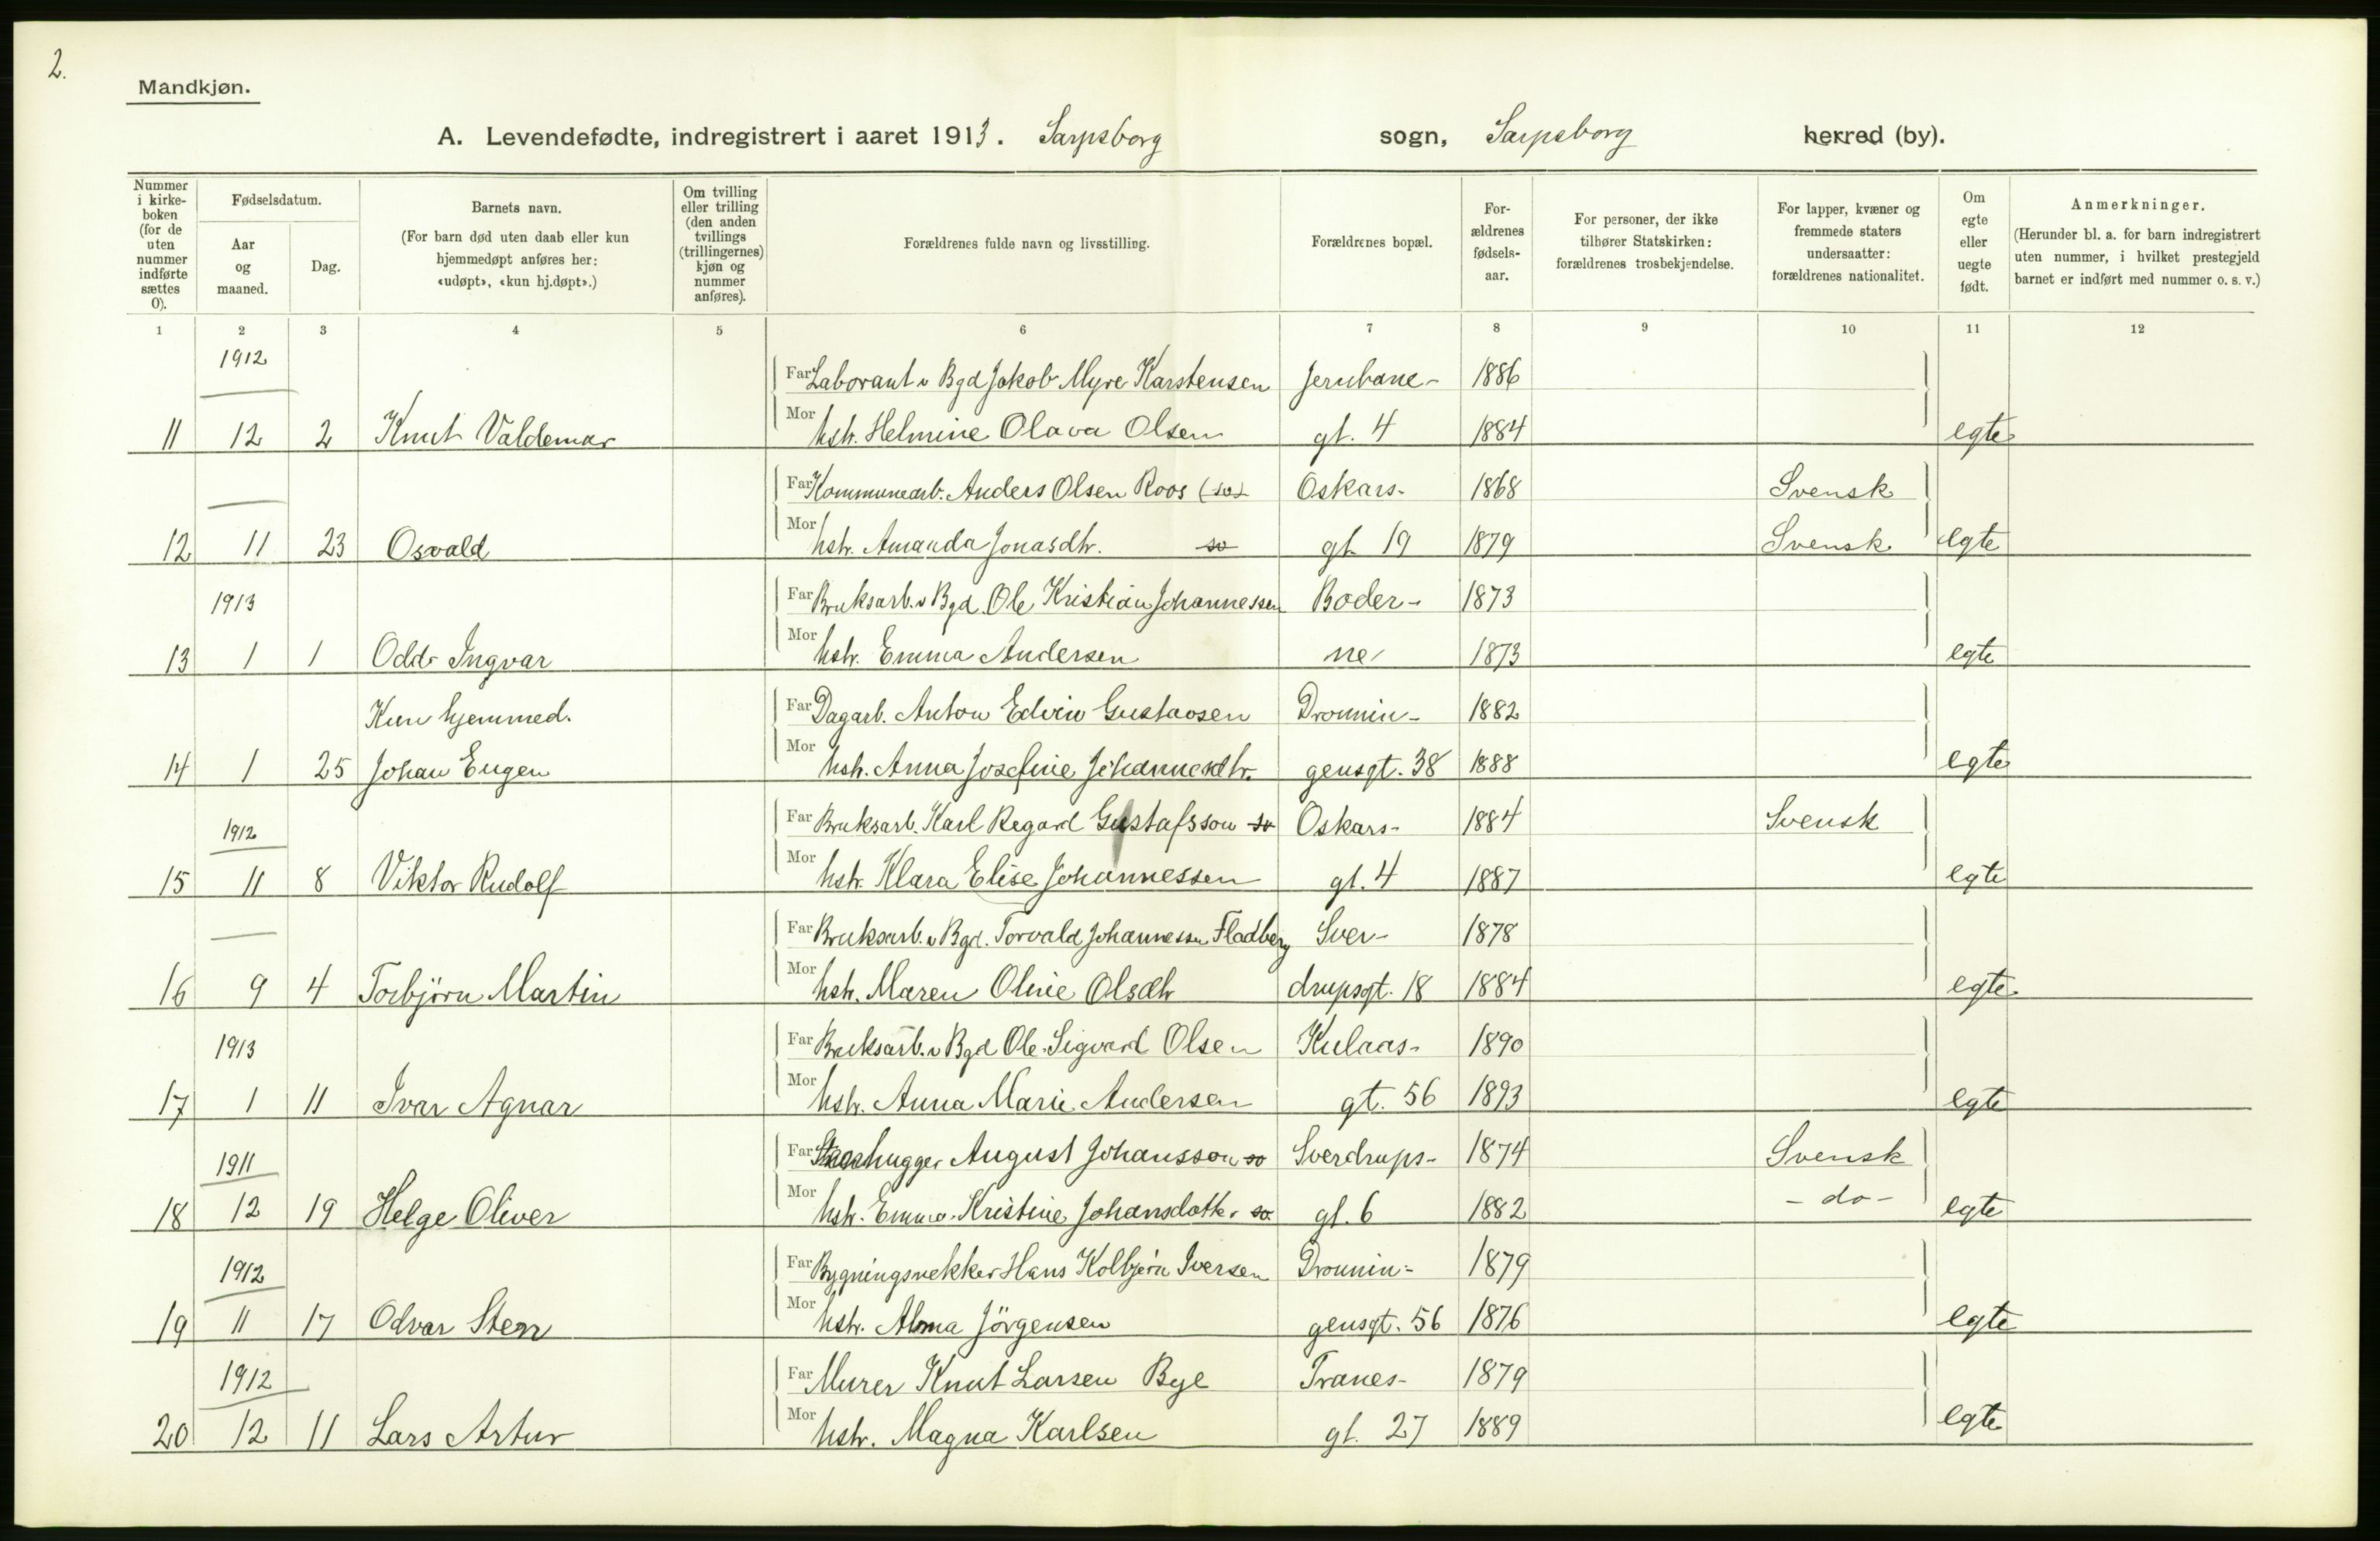 2.
Mandkjøn.
A. Levendefødte, indregistrert i aaret 1913. Sarpsborg sogn, Sarpsborg herred (by).
Nummer i kirke-boken (for de uten nummer indførte sættes 0).
Fødselsdatum.
Aar og maaned.
Dag.
Barnets navn.
(For barn død uten daab eller kun
hjemmedøpt anføres her:
«udøpt», «kun hj.døpt».)
Om tvilling
eller trilling
(den anden
tvillings
(trillingernes)
kjøn og
nummer
anføres).
Forældrenes fulde navn og livsstilling.
Forældrenes bopæl.
For-
ældrenes
fødsels-
aar.
For personer, der ikke
tilhører Statskirken:
forældrenes trosbekjendelse.
For lapper, kvæner og
fremmede staters
undersaatter:
forældrenes nationalitet.
Om
egte
eller
uegte
født.
Anmerkninger.
(Herunder bl. a. for barn indregistrert
uten nummer, i hvilket prestegjeld
barnet er indført med nummer o. s. v.)
1 2 3 4 5 6 7 8 9 10 11 12
1912
Far Laborant v Bgd Jakob Myre Karstensen Jernbane- 1886
11 12 2 Knut Valdemar Mor hstr. Helmine Olava Olsen gt. 4 1884 egte
Far Kommunearb. Anders Olsen Roos (sv) Oskars- 1868 Svensk
12 11 23 Osvald Mor hstr. Amanda Jonasdtr. sv gt 19 1879 Svensk egte
1913 Far Bruksarb. v Bgd. Ole Kristian Johannessen Boder- 1873
13 1 1 Odd Ingvar Mor hstr. Emma Andersen ne 1873 egte
Kun hjemmed. Far Dagarb. Anton Edvin Gustavsen Dronnin- 1882
14 1 25 Johan Eugen Mor hstr. Anna Josefine Johannesdtr. gensgt. 38 1888 egte
1912 Far Bruksarb. Karl Regard Gustafsson sv Oskars- 1884 Svensk
15 11 8 Viktor Rudolf Mor hstr. Klara Elise Johannessen gt. 4 1887 egte
Far Bruksarb. v Bgd. Torvald Johannessen Fladberg Sver- 1878
16 9 4 Torbjörn Martin Mor hstr. Maren Oline Olsdtr drupsgt. 18 1884 egte
1913 Far Bruksarb. v Bgd Ole Sigvard Olsen Kulaas- 1890
17 1 11 Ivar Agnar Mor hstr. Anna Marie Andersen gt. 56 1893 egte
1911 Far Stenhugger August Johansson sv Sverdrups- 1874 Svensk
18 12 19 Helge Oliver Mor hstr. Emma Kristine Johansdotter sv gt. 6 1882 - do - egte
1912 Far Bygningsnekker Hans Kolbjörn Iversen Dronnin- 1879
19 11 17 Odvar Sten Mor hstr. Alma Jörgensen gensgt. 56 1876 egte
1912 Far Murer Knut Larsen Bye Tranes- 1879
20 12 11 Lars Artur Mor hstr. Magna Karlsen gt. 27 1889 egte